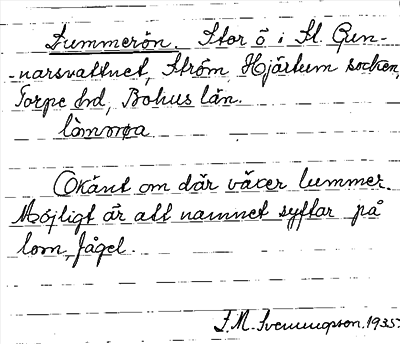 Lummerön. Stor ö i St. Gun-
-narsvattnet, Ström, Hjärtum socken,
Torpe hd, Bohus län.
Okänt om där växer lummer.
Möjligt är att namnet syftar på
lom, fågel.
1935.